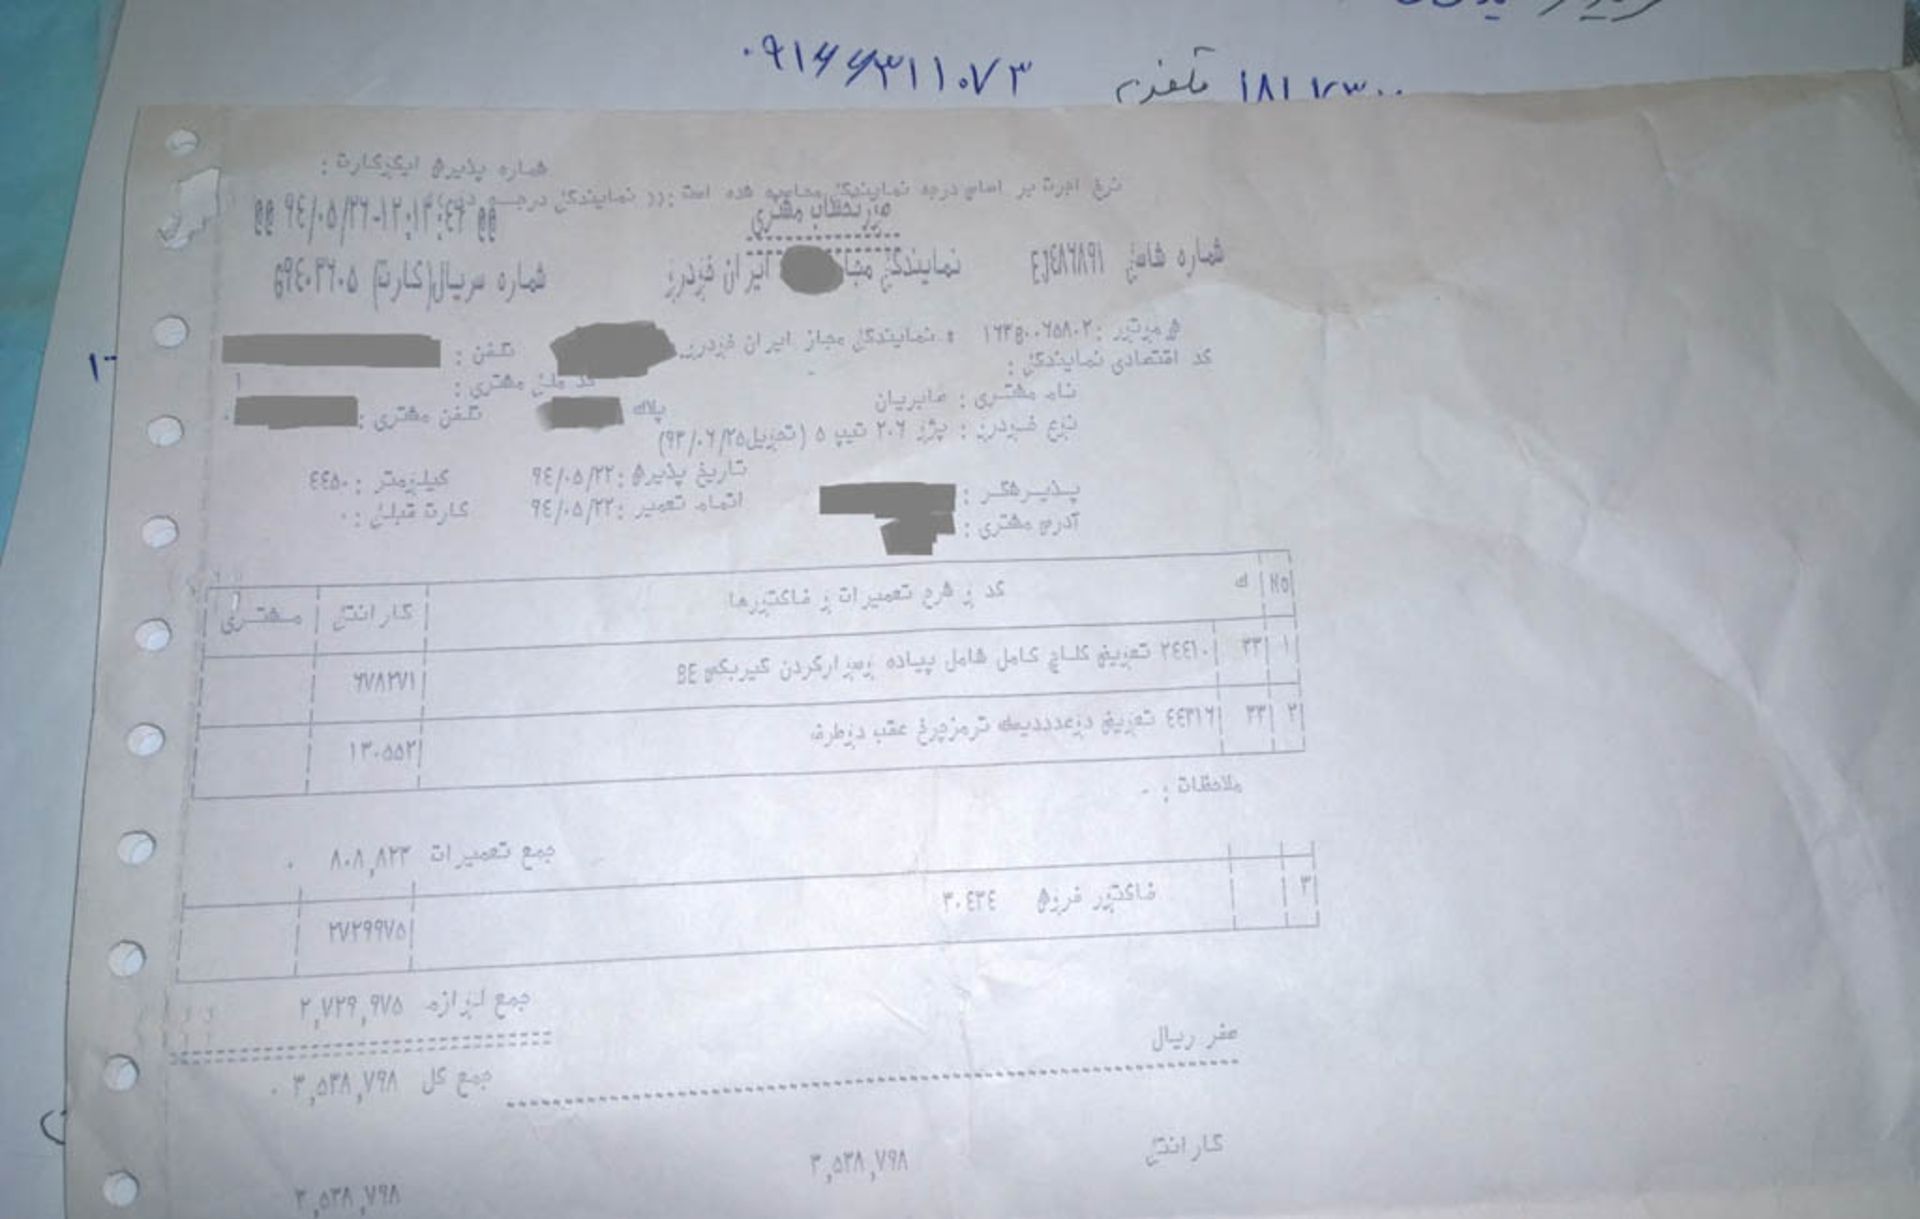 ۰۹۱۴۴۳۱۱۰۷۳ تلفن
شماره پذیرش ایکیکارت :
نرخ اجرت بر اساس درجه نمایندگی محاسبه شده است :رد نمایندگی درجـه
@@ ۹٤/۰۵/۲٦-۱۲:۱۳:٤٦ @@
صورتحساب مشتری
شماره شاسی EJ٤۸٦۸۹۱ نمایندگی مجاز ایران خودرو شماره سریال(کارت) G۹٤۰۳٦۰۵
ش موتور :۱٦۳B۰۰٦۵۸۰۲ نمایندگی مجاز ایران خودرو تلفن :
کد اقتصادی نمایندگی : کد ملی مشتری : ۱
نام مشتری : صابریان پلاك تلفن مشتری :
نوع خودرو : پژو ۲۰٦ تیپ ۵ (تحویل۹۳/۰٦/۲۵)
تاریخ پذیرش :۹٤/۰۵/۲۲ کیلومتر : ٤٤۵۰
پذیـرشگـر : اتمام تعمیر :۹٤/۰۵/۲۲ کارت قبلی :۰
آدرس مشتری :
No ك کد و شرح تعمیرات و فاکتورها گارانتی مـشتـری
۱ ۳۳ ۲٤٤۱۰ تعویض کلاچ کامل شامل پیاده وسوارکردن گیربکس BE ٦۷۸۲۷۱
۲ ۳۳ ٤٤۳۱٦ تعویض دوعدددیسك ترمزچرخ عقب دوطرف ۱۳۰۵۵۲
ملاحظات : .
جمع تعمیرات ۸۰۸,۸۲۳ ۰
۳ فاکتور فروش ۳۰٤۳٤ ۲۷۲۹۹۷۵
جمع لوازم ۲,۷۲۹,۹۷۵
صفر ریال
جمع کل ۳,۵۳۸,۷۹۸ ۰
گارانتی ۳,۵۳۸,۷۹۸
۳,۵۳۸,۷۹۸